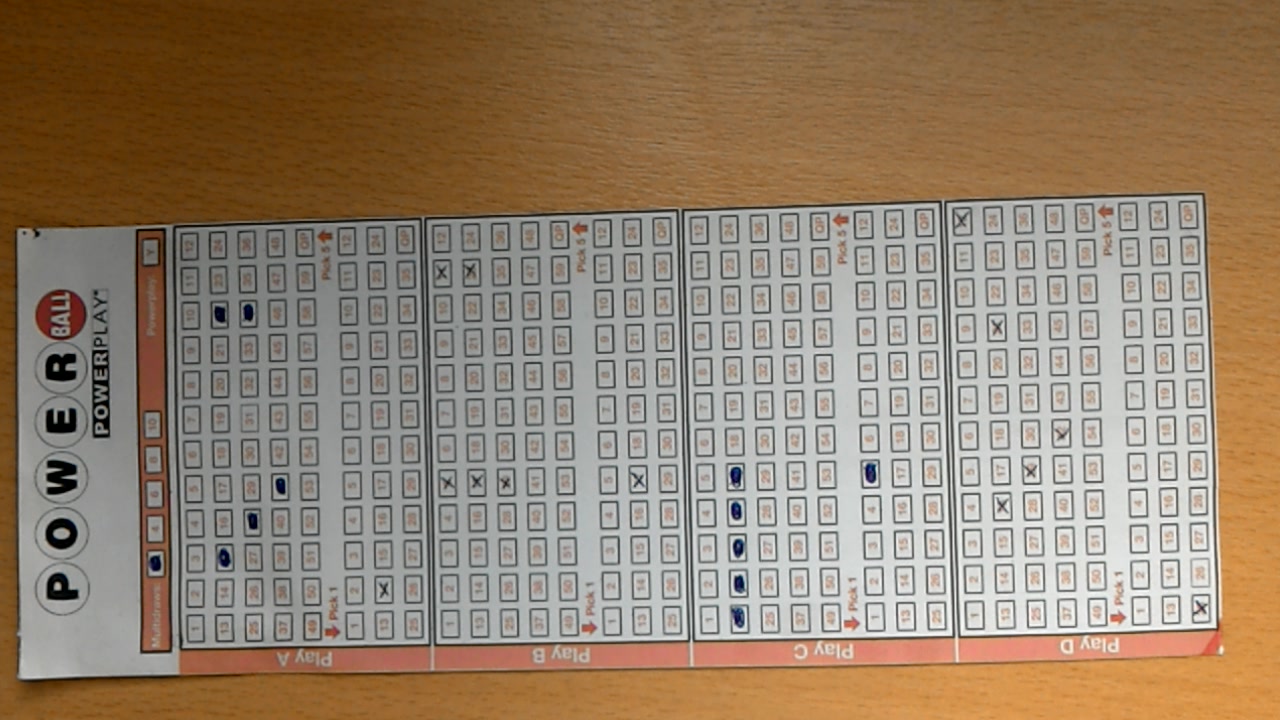 POWER BALL
POWERPLAY
Multidraws 4 6 8 10 Powerplay Y
Play A
1 2 3 4 5 6 7 8 9 10 11 12
13 14 16 17 18 19 20 21 23 24
25 26 27 29 30 31 32 33 35 36
37 38 39 40 42 43 44 45 46 47 48
49 50 51 52 53 54 55 56 57 58 59 QP
Pick 1 Pick 5
1 2 3 4 5 6 7 8 9 10 11 12
13 15 16 17 18 19 20 21 22 23 24
25 26 27 28 29 30 31 32 33 34 35 QP
Play B
1 2 3 4 6 7 8 9 10 12
13 14 15 16 18 19 20 21 22 24
25 26 27 28 30 31 32 33 34 35 36
37 38 39 40 41 42 43 44 45 46 47 48
49 50 51 52 53 54 55 56 57 58 59 QP
Pick 1 Pick 5
1 2 3 4 5 6 7 8 9 10 11 12
13 14 15 16 18 19 20 21 22 23 24
25 26 27 28 29 30 31 32 33 34 35 QP
Play C
1 2 3 4 5 6 7 8 9 10 11 12
18 19 20 21 22 23 24
25 26 27 28 29 30 31 32 33 34 35 36
37 38 39 40 41 42 43 44 45 46 47 48
49 50 51 52 53 54 55 56 57 58 59 QP
Pick 1 Pick 5
1 2 3 4 6 7 8 9 10 11 12
13 14 15 16 17 18 19 20 21 22 23 24
25 26 27 28 29 30 31 32 33 34 35 QP
Play D
1 2 3 4 5 6 7 8 9 10 11
13 14 15 17 18 19 20 22 23 24
25 26 27 28 30 31 32 33 34 35 36
37 38 39 40 41 43 44 45 46 47 48
49 50 51 52 53 54 55 56 57 58 59 QP
Pick 1 Pick 5
1 2 3 4 5 6 7 8 9 10 11 12
13 14 15 16 17 18 19 20 21 22 23 24
26 27 28 29 30 31 32 33 34 35 QP